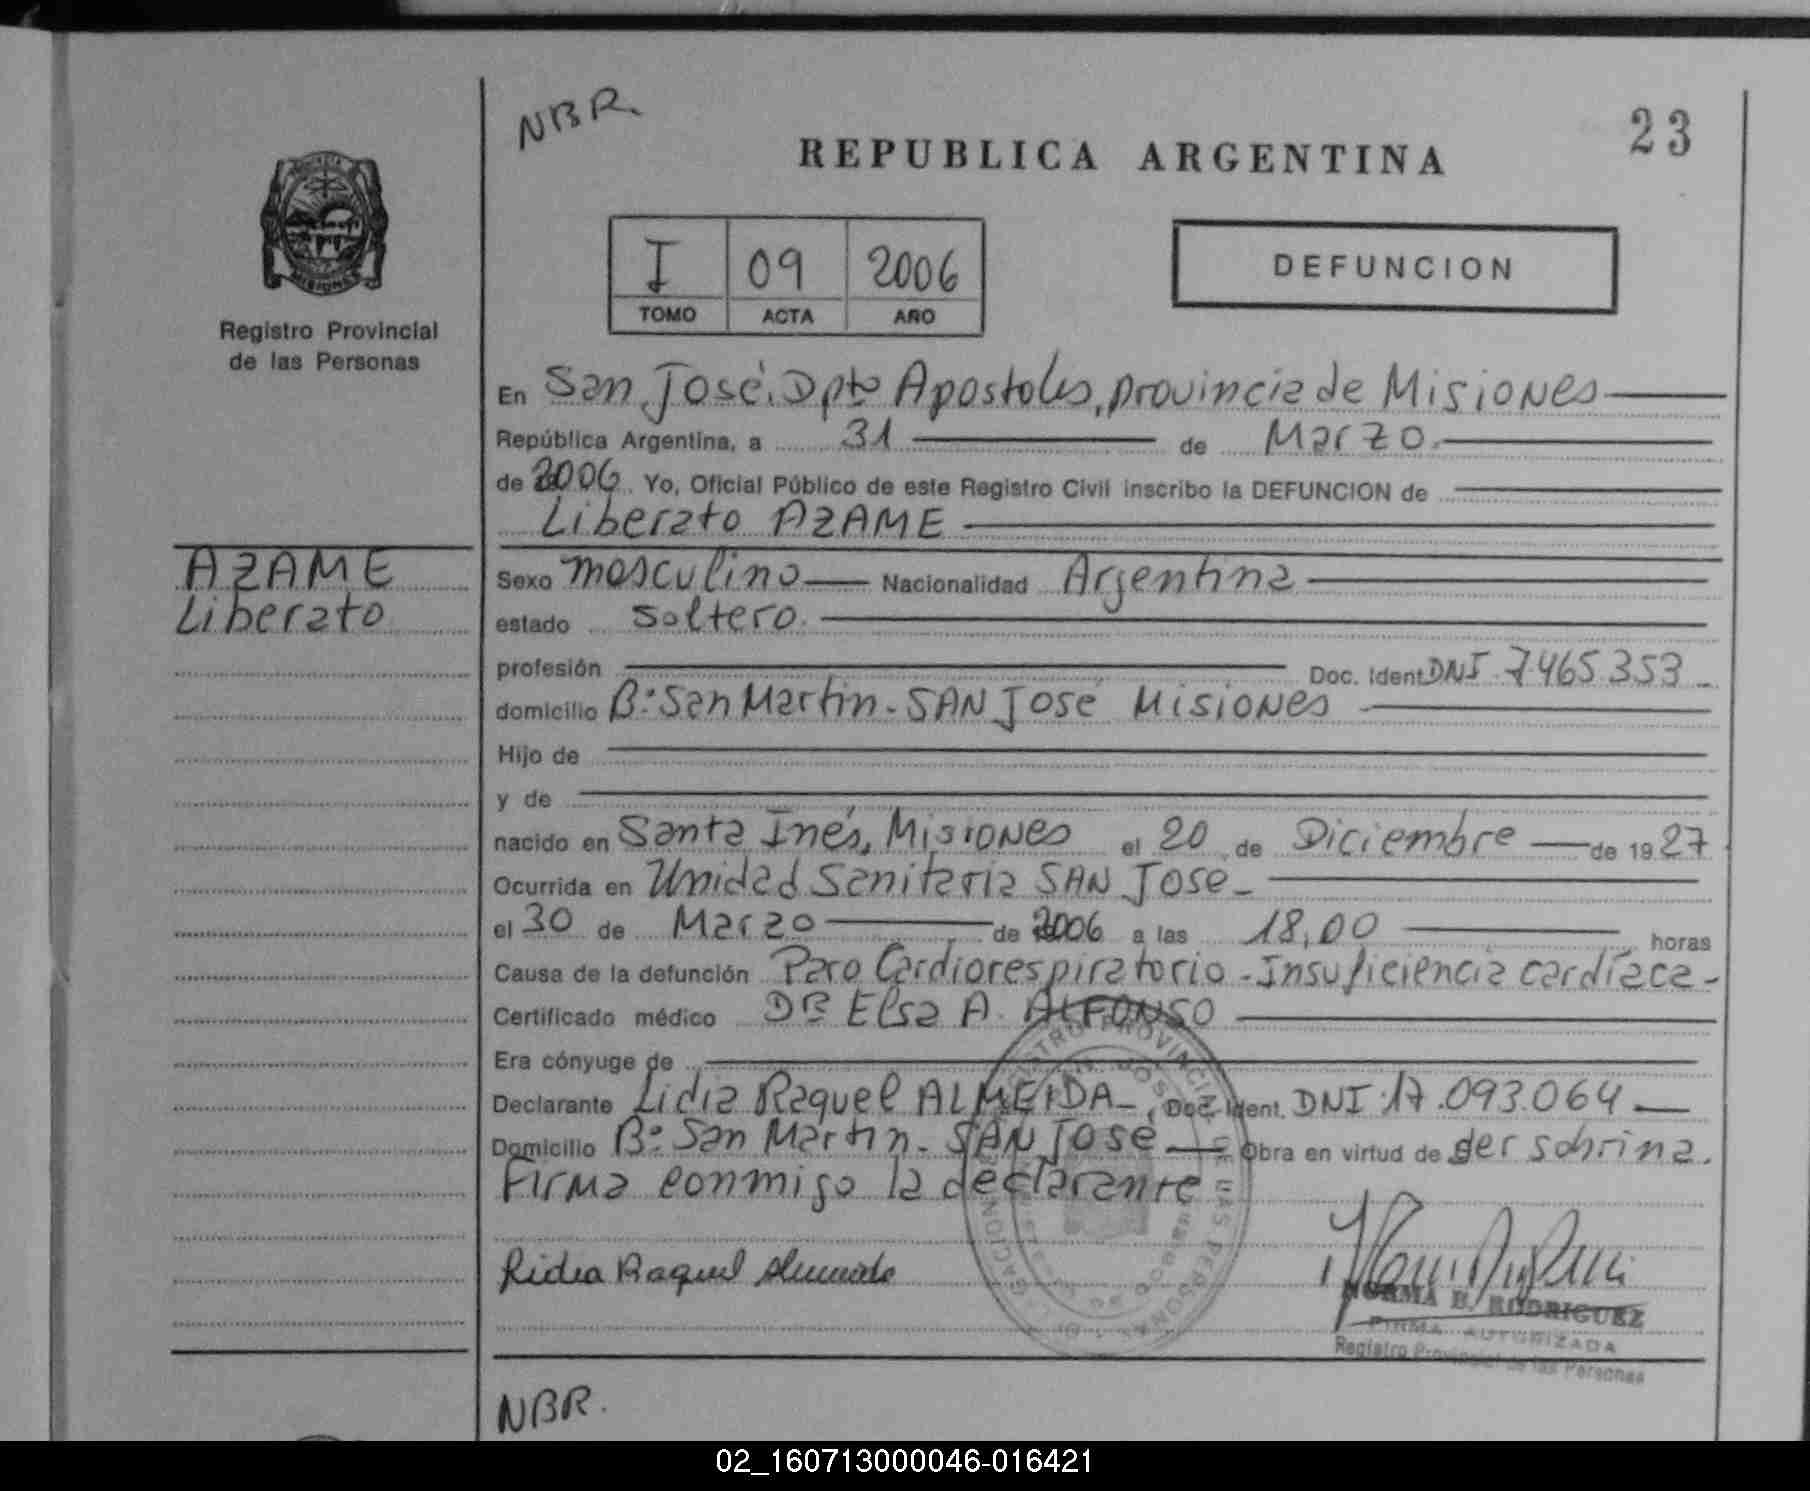 NBR.
23
REPUBLICA ARGENTINA
I 09 2006
TOMO ACTA AÑO
DEFUNCION
PROVINCIA
MISIONES
Registro Provincial
de las Personas
En San José. Dpto Apostoles, provincia de Misiones
República Argentina, a 31 de Marzo.
de 2006. Yo, Oficial Público de este Registro Civil inscribo la DEFUNCION de
Liberato AZAME
AZAME
Liberato
Sexo masculino Nacionalidad Argentina
estado soltero.
profesión Doc. Ident. DNI. 7.465.353
domicilio Bº San Martin - SAN José Misiones
Hijo de
y de
nacido en Santa Inés, Misiones el 20 de Diciembre de 1927
Ocurrida en Unidad Sanitaria SAN Jose
el 30 de Marzo de 2006 a las 18,00 horas
Causa de la defunción Paro Cardiorespiratorio - Insuficiencia cardíaca
Certificado médico Dra Elsa A. ALFONSO
Era cónyuge de
Declarante Lidia Raquel ALMEIDA, Doc. Ident. DNI. 17.093.064
Domicilio Bº San Martin - SAN José Obra en virtud de ser sobrina.
Firma conmigo la declarante
Lidia Raquel Almeida
NORMA B. RODRIGUEZ
FIRMA AUTORIZADA
Registro Provincial de las Personas
NBR.
02_160713000046-016421